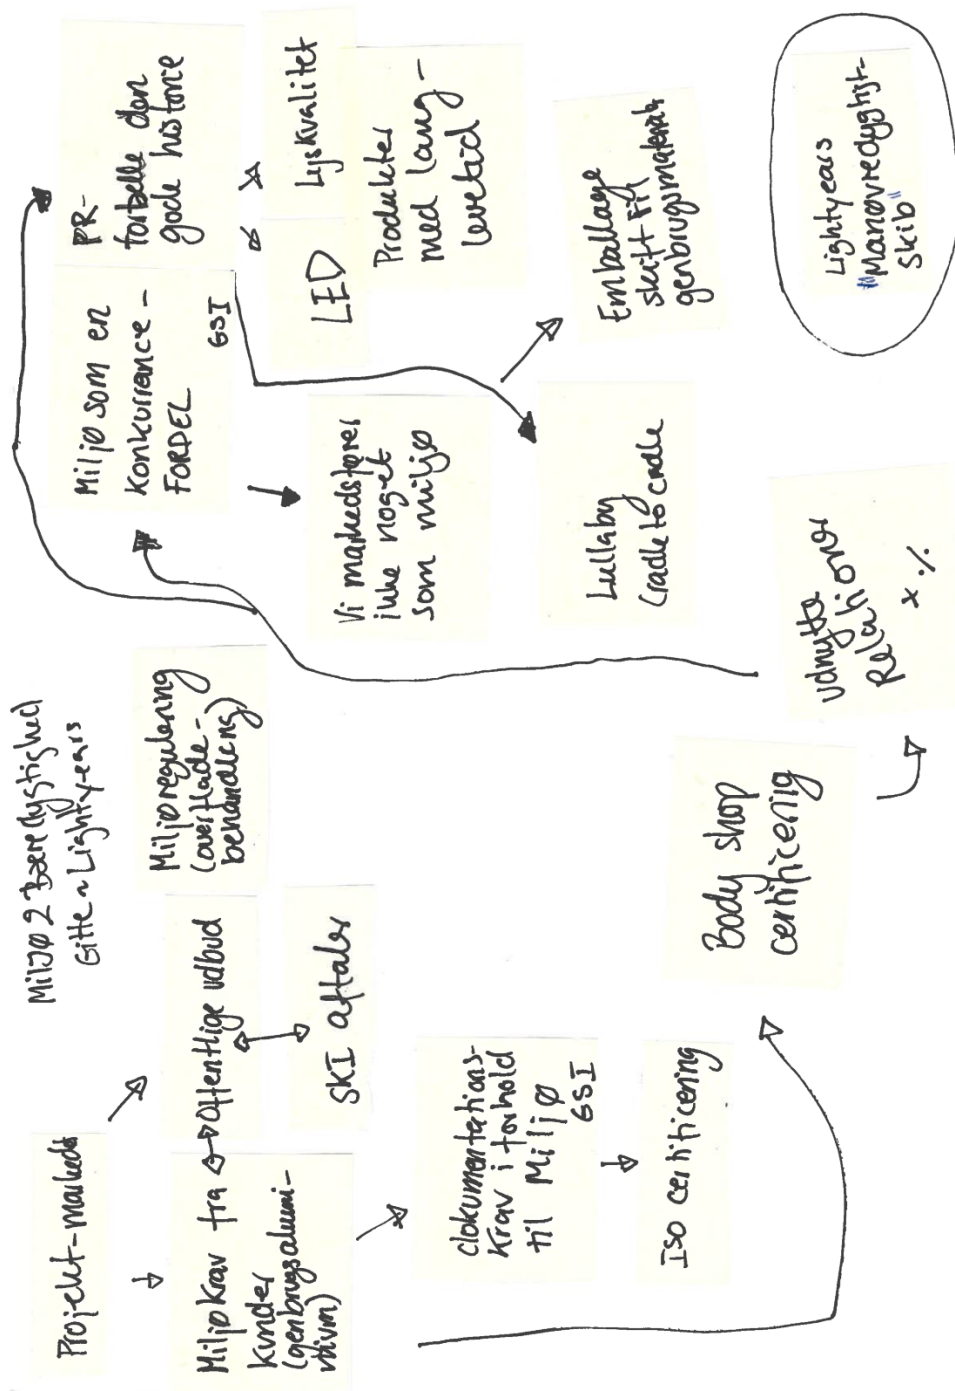 Miljø 2 Bæredygtighed
Gitte ~ Lightyears
Projekt-marked
Miljøkrav fra
kunder
(genbrugsalumi-
nium)
Offentlige udbud
SKI aftaler
Miljøregulering
(overflade-
behandling)
dokumentations-
krav i forhold
til Miljø
GSI
Iso certificering
Body shop
certificering
udnytte
Relationer
x %
Miljø som en
konkurrance-
FORDEL
GSI
PR-
fortælle den
gode historie
LED
Lyskvalitet
Produkter
med lang-
levetid
Vi markedsfører
ikke noget
som miljø
Lullaby
Cradle to cradle
Emballage
skift til
genbrugsmateriale
Lightyears
"Manøvredygtigt-
skib"